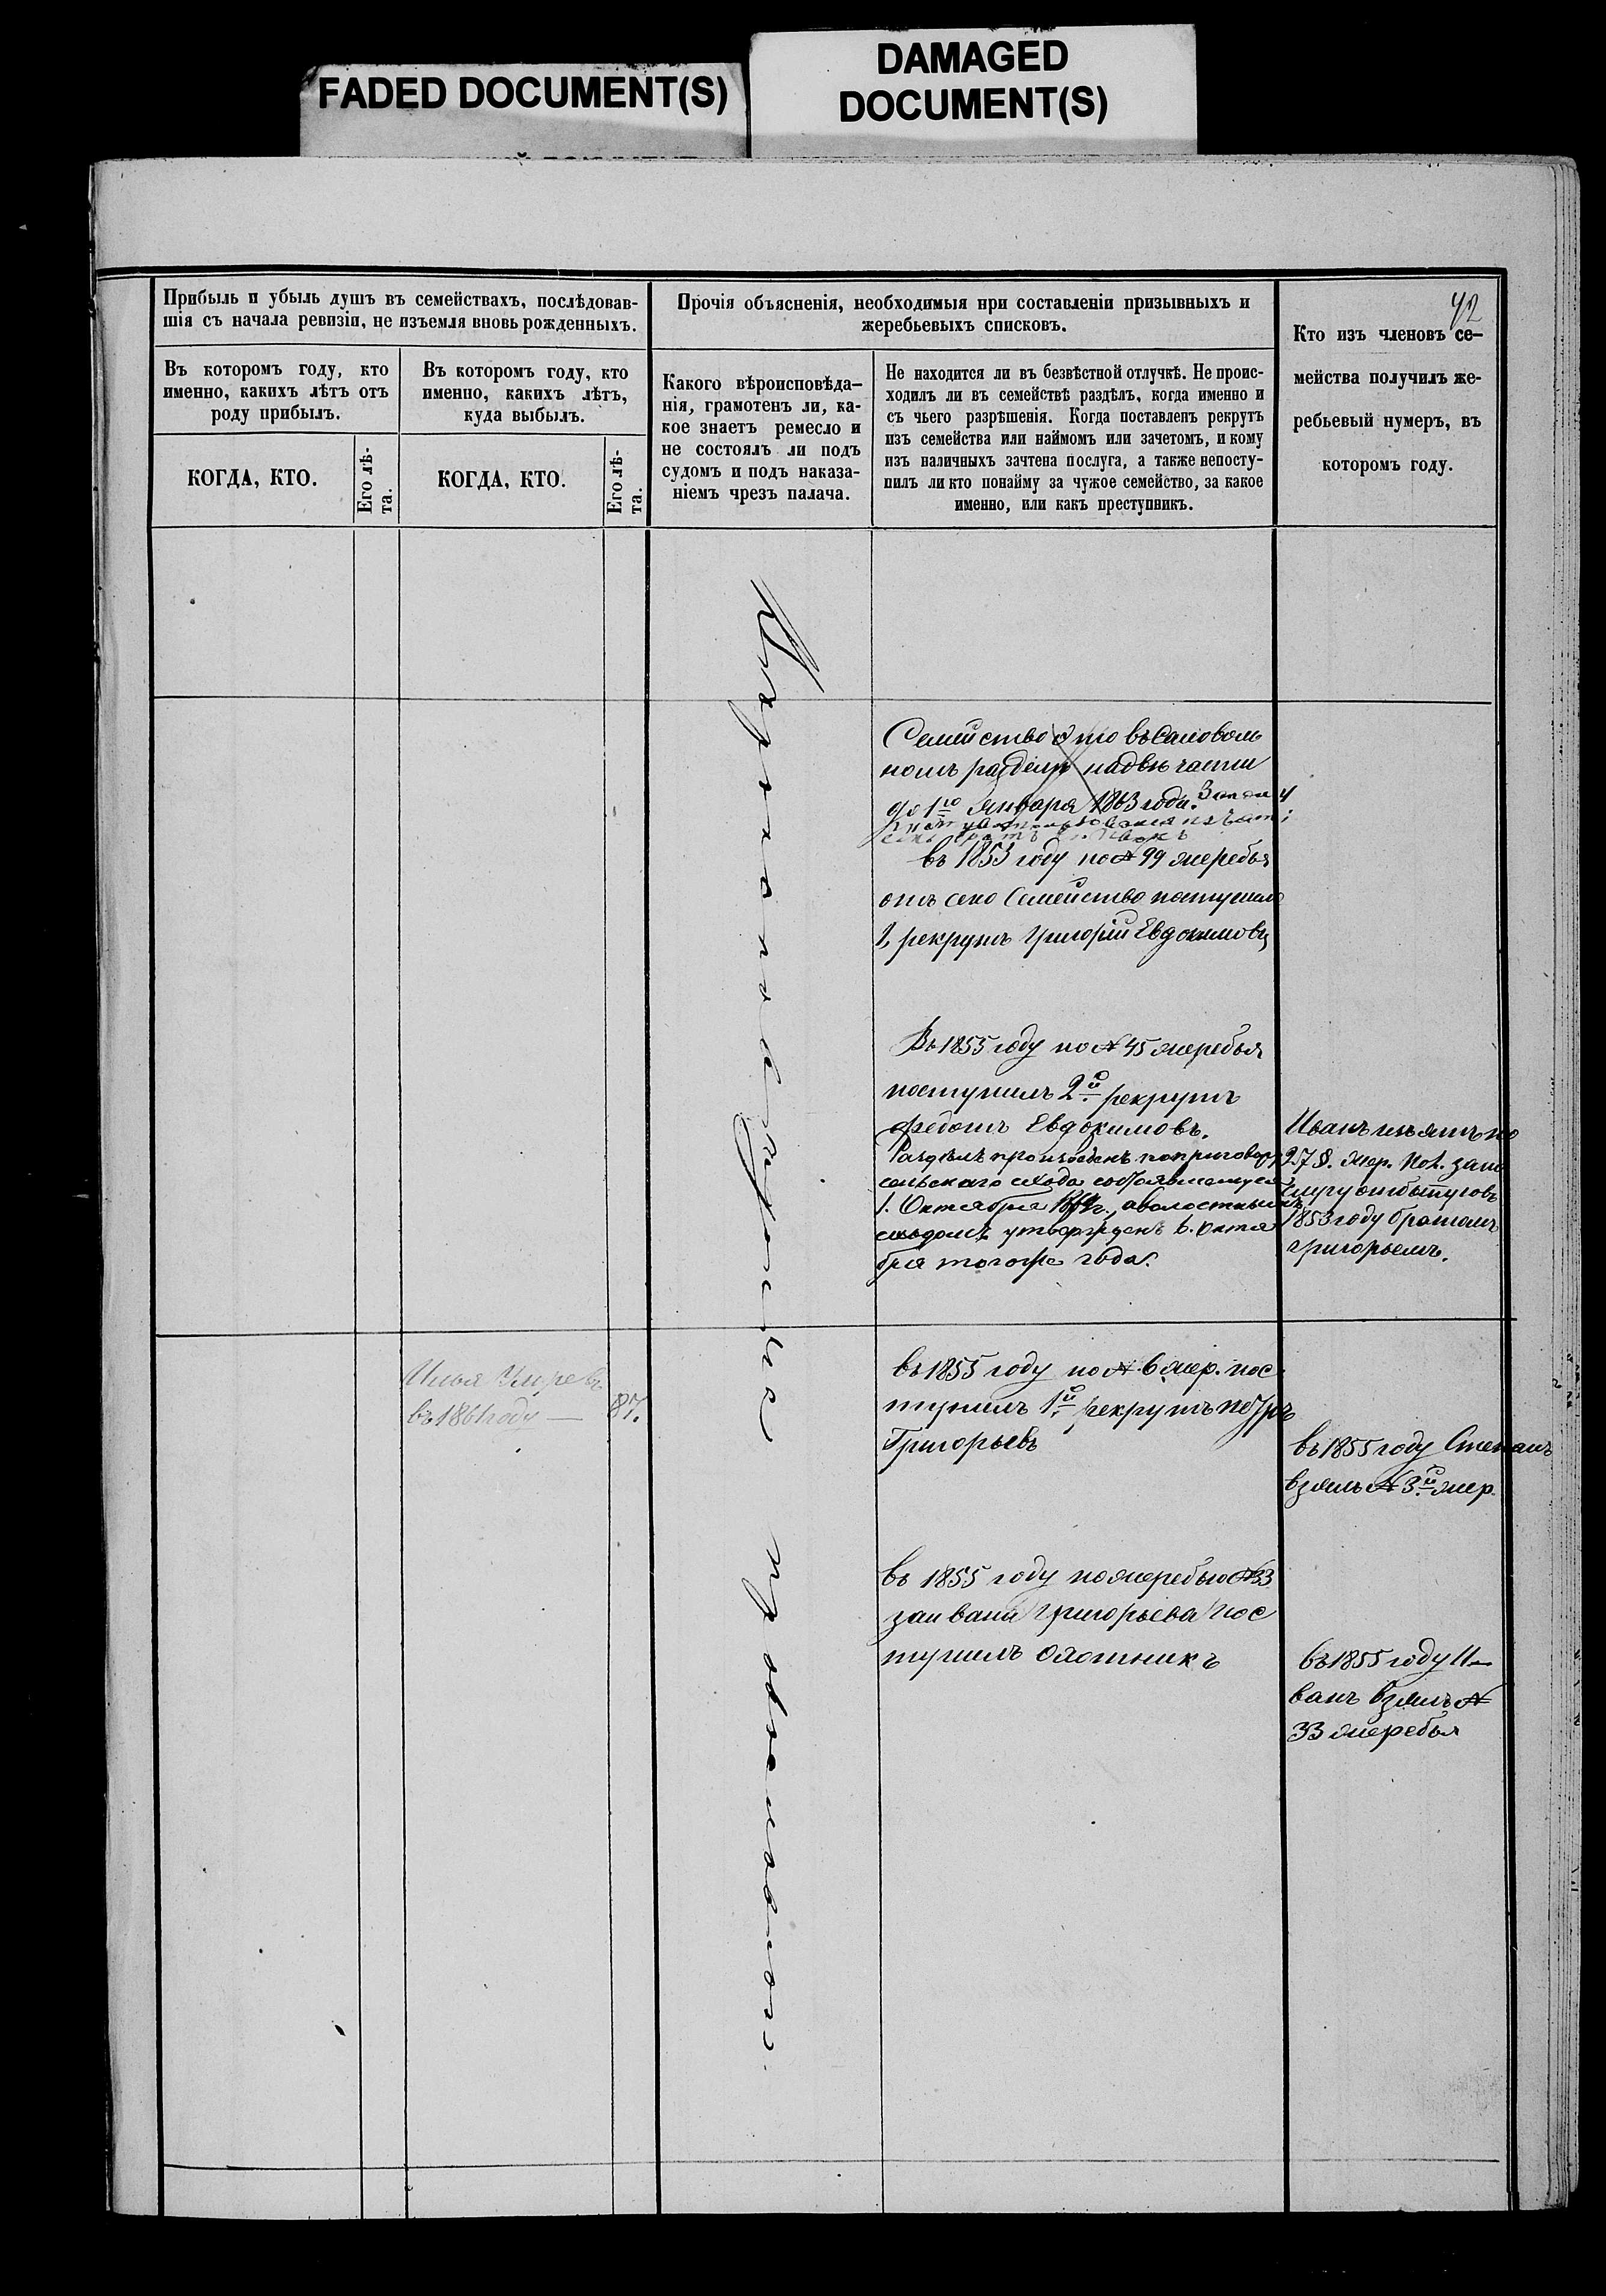 FADED DOCUMENT(S)
DAMAGED
DOCUMENT(S)
42
Прибыль и убыль душъ въ семействахъ, послѣдовав-
шія съ начала ревизіи, не изъемля вновь рожденныхъ.
Въ которомъ году, кто
именно, какихъ лѣтъ отъ
роду прибылъ.
КОГДА, КТО.
Его лѣ-
та.
Въ которомъ году, кто
именно, какихъ лѣтъ,
куда выбылъ.
КОГДА, КТО.
Его лѣ-
та.
Прочія объясненія, необходимыя при составленіи призывныхъ и
жеребьевыхъ списковъ.
Какого вѣроисповѣда-
нія, грамотенъ ли, ка-
кое знаетъ ремесло и
не состоялъ ли подъ
судомъ и подъ наказа-
ніемъ чрезъ палача.
Не находится ли въ безвѣстной отлучкѣ. Не проис-
ходилъ ли въ семействѣ раздѣлъ, когда именно и
съ чьего разрѣшенія. Когда поставленъ рекрутъ
изъ семейства или наймомъ или зачетомъ, и кому
изъ наличныхъ зачтена послуга, а также непосту-
пилъ ли кто понайму за чужое семейство, за какое
именно, или какъ преступникъ.
Кто изъ членовъ се-
мейства получилъ же-
ребьевый нумеръ, въ
которомъ году.
Семейство это въ самоволь
номъ раздѣлѣ на двѣ части
до 1го Января 1863 года.
въ 1853 году по № 99 жеребья
отъ сего Семейство поступилъ
1, рекрутъ Григорій Евдокимовъ
Въ 1855 году по № 45 жеребья
поступилъ 2й рекрутъ
Федотъ Евдокимовъ.
Раздѣлъ произведенъ по приговору
сельскаго схода состоявшемуся
1. Октября
сходомъ утвержденъ 6. Октя
бря того же года.
Иванъ изъятъ по
257 §. жер. No1. за по
слугу отбытую въ
1853 году братомъ
Григорьемъ.
Илья Умре въ
въ 1861 году — 87.
въ 1855 году по № 6 жер. пос
тупилъ 1й рекрутъ Петръ
Григорьевъ
въ 1855 году Степанъ
взялъ № 3й жер.
въ 1855 году по жеребью № 33
за Ивана Григорьева пос
тупилъ охотникъ
въ 1855 году И—
ванъ взялъ №
33 жеребья